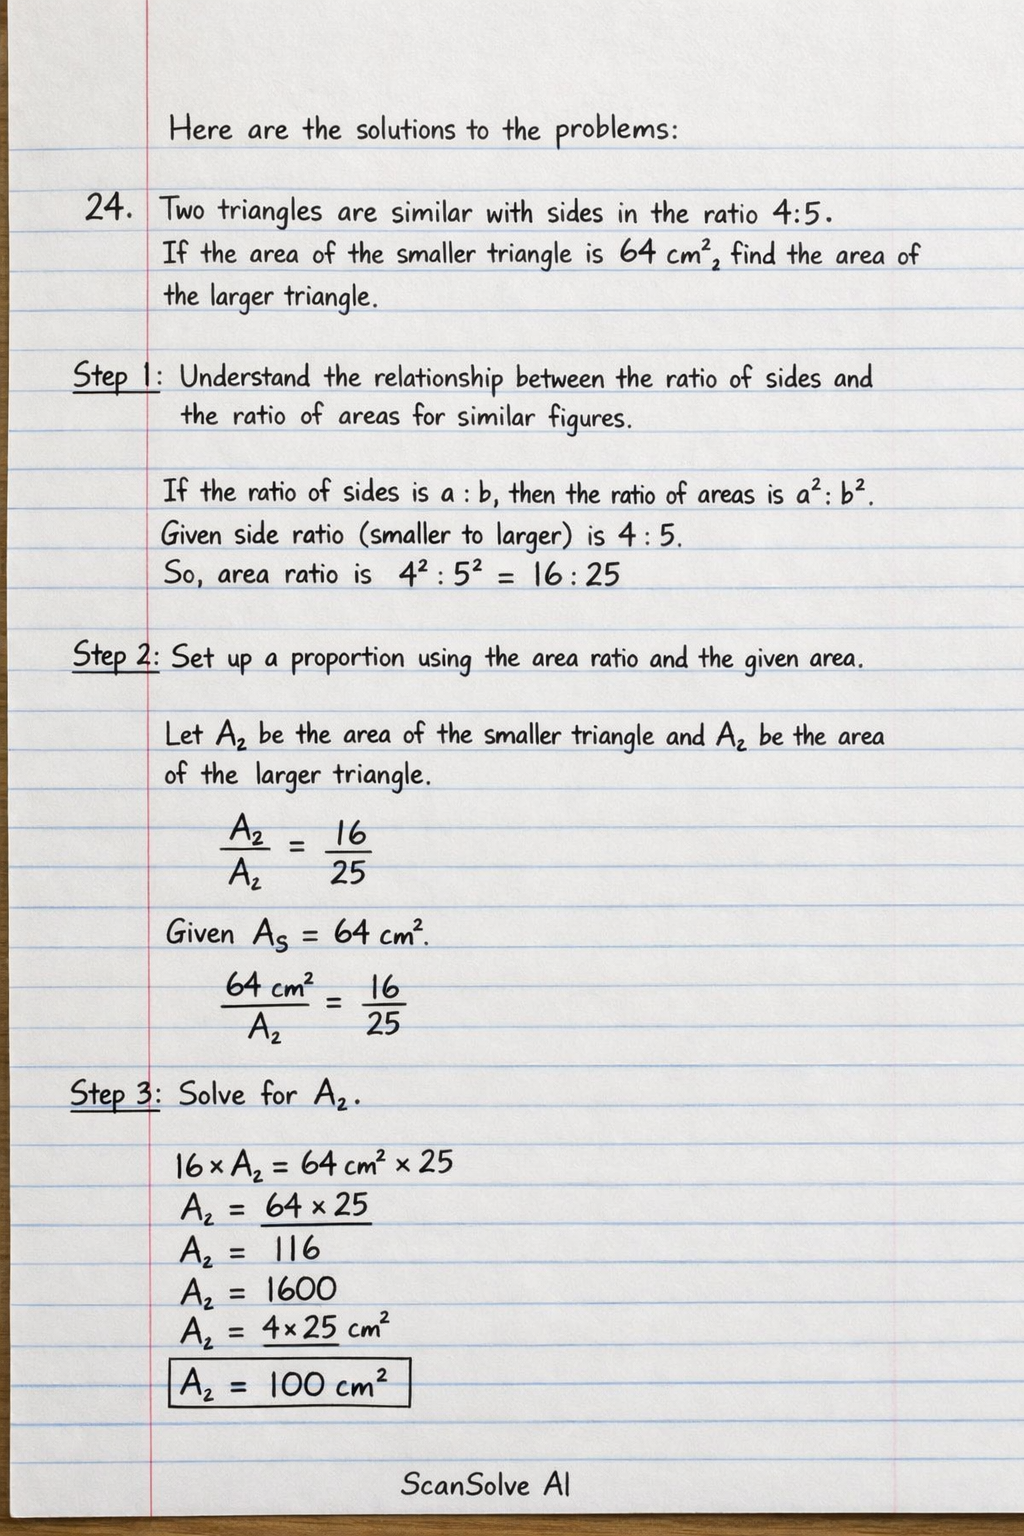 Here are the solutions to the problems:
24. Two triangles are similar with sides in the ratio 4:5.
If the area of the smaller triangle is 64 cm²₂ find the area of
the larger triangle.
Step 1: Understand the relationship between the ratio of sides and
the ratio of areas for similar figures.
If the ratio of sides is a : b, then the ratio of areas is a² : b².
Given side ratio (smaller to larger) is 4 : 5.
So, area ratio is 4² : 5² = 16 : 25
Step 2: Set up a proportion using the area ratio and the given area.
Let A₂ be the area of the smaller triangle and A₂ be the area
of the larger triangle.
A₂/A₂ = 16/25
Given Aₛ = 64 cm².
64 cm²/A₂ = 16/25
Step 3: Solve for A₂.
16 × A₂ = 64 cm² × 25
A₂ = 64 × 25
A₂ = 116
A₂ = 1600
A₂ = 4 × 25 cm²
A₂ = 100 cm²
ScanSolve AI